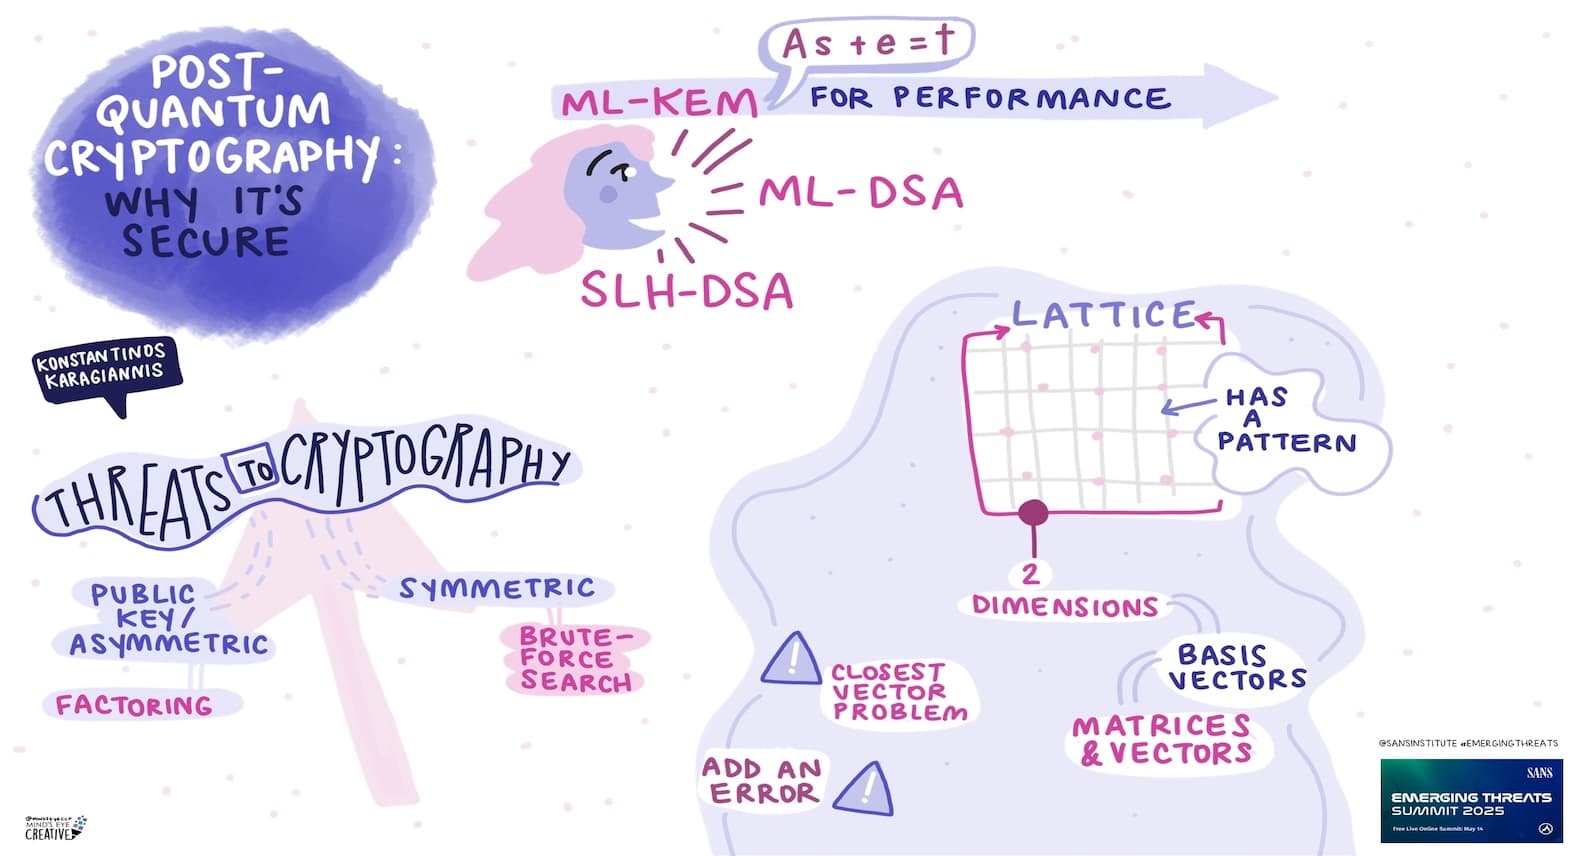 POST-
QUANTUM
CRYPTOGRAPHY:
WHY IT'S
SECURE
KONSTANTINOS
KARAGIANNIS
As + e = t
ML-KEM
FOR PERFORMANCE
ML-DSA
SLH-DSA
THREATS TO CRYPTOGRAPHY
PUBLIC
KEY/
ASYMMETRIC
FACTORING
SYMMETRIC
BRUTE-
FORCE
SEARCH
LATTICE
HAS
A
PATTERN
2
DIMENSIONS
BASIS
VECTORS
MATRICES
& VECTORS
!
CLOSEST
VECTOR
PROBLEM
ADD AN
ERROR
!
@SANSINSTITUTE #EMERGINGTHREATS
SANS
EMERGING THREATS
SUMMIT 2025
Free Live Online Summit: May 14
MIND'S EYE
CREATIVE